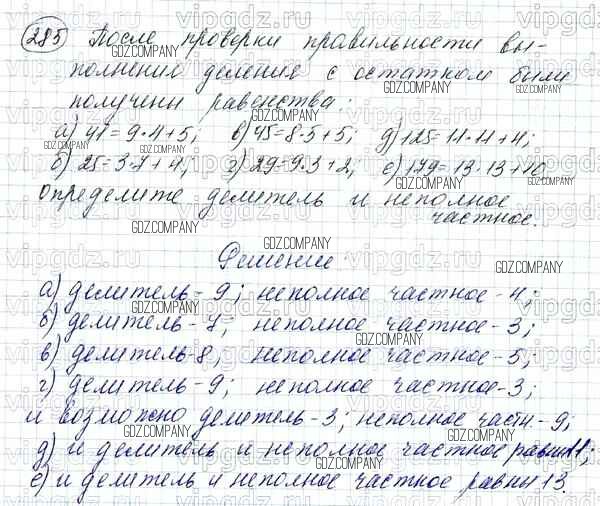 285 После проверки правильности вы-
полнению деления с остатком были
получены равенства:
а) 41 = 9·4+5; в) 45=8·5+5; д) 125=11·11+4;
б) 25=3·7+4; г) 29=9·3+2; е) 179=13·13+10.
Определите делитель и неполное
частное.
Решение
а) делитель-9; неполное частное-4;
б) делитель-7; неполное частное-3;
в) делитель-8; неполное частное-5;
г) делитель-9; неполное частное-3;
и возможно делитель-3; неполное частн.-9;
д) и делитель и неполное частное равны 11;
е) и делитель и неполное частное равны 13.